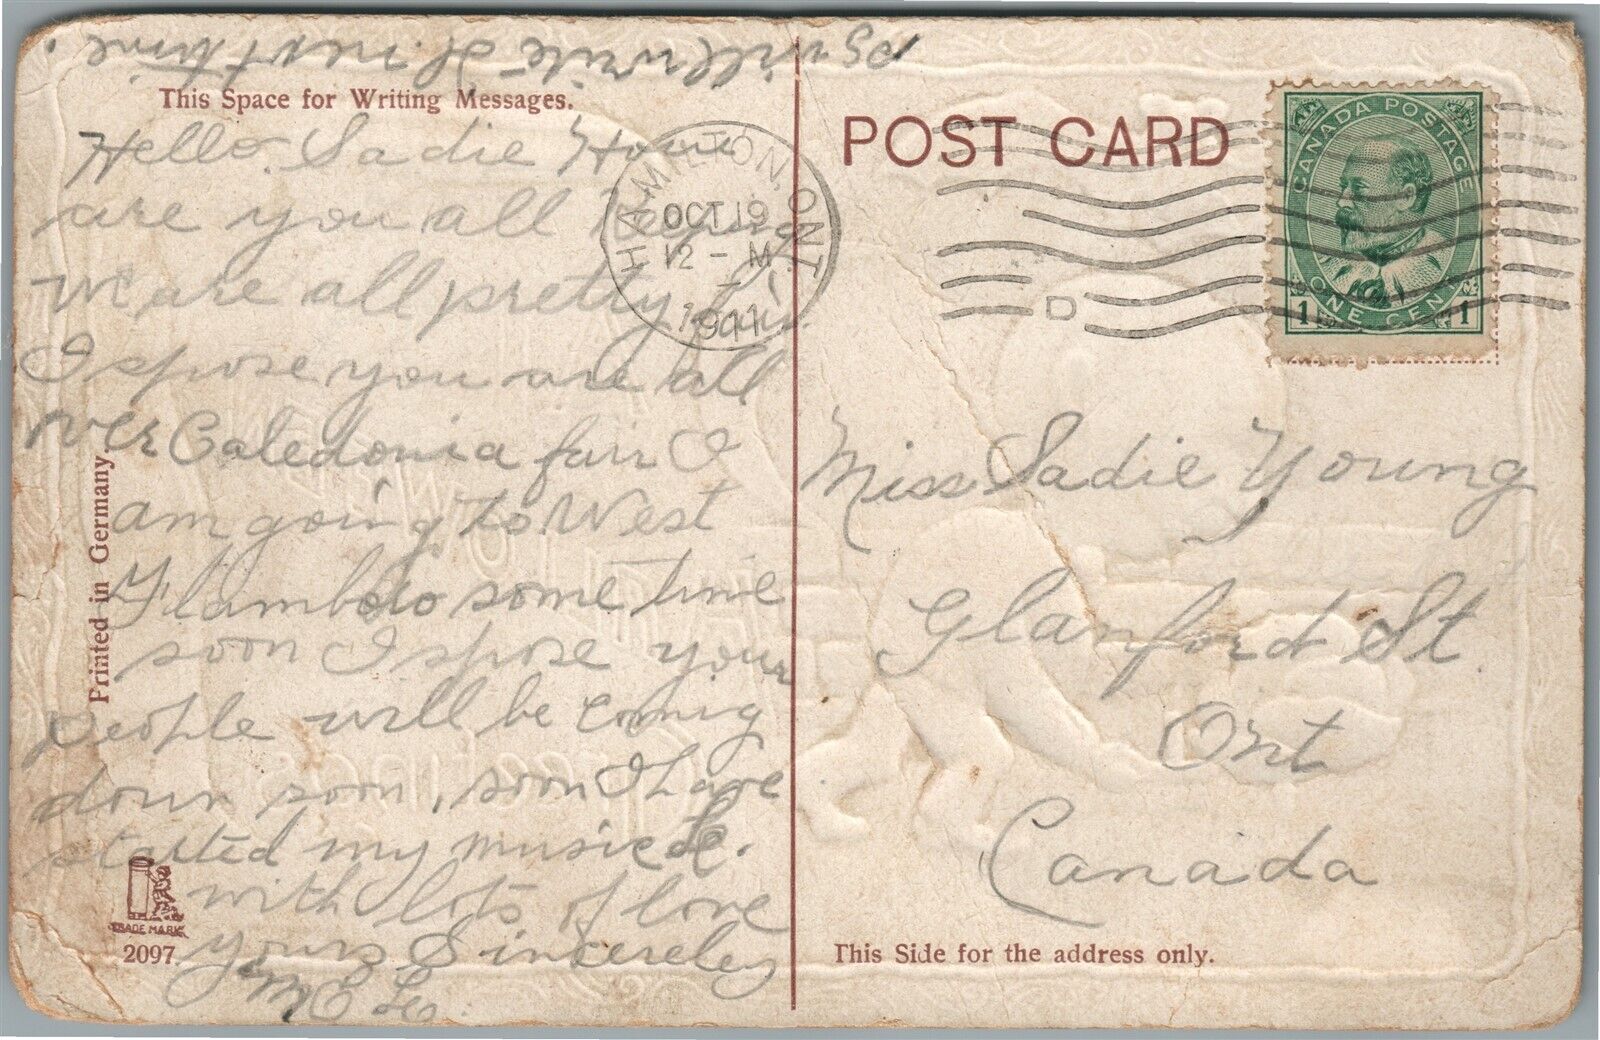 PS will write St. next time.
This Space for Writing Messages.
Hello. Sadie How
are you all keeping
we are all pretty
I spose you are all
over Caledonia fair I
am going to West
Flamboro some time
soon I spose your
people will be comig
down soon, soon I have
started my music
with lots of love
yours Sincereley
Printed in Germany.
TRADE MARK
2097
HAMILTON, ONT.
OCT 19
12 - M
1911
D
POST CARD
CANADA POSTAGE
1 ONE CENT 1
Miss Sadie Young
Glanford St.
Ont
Canada
This Side for the address only.